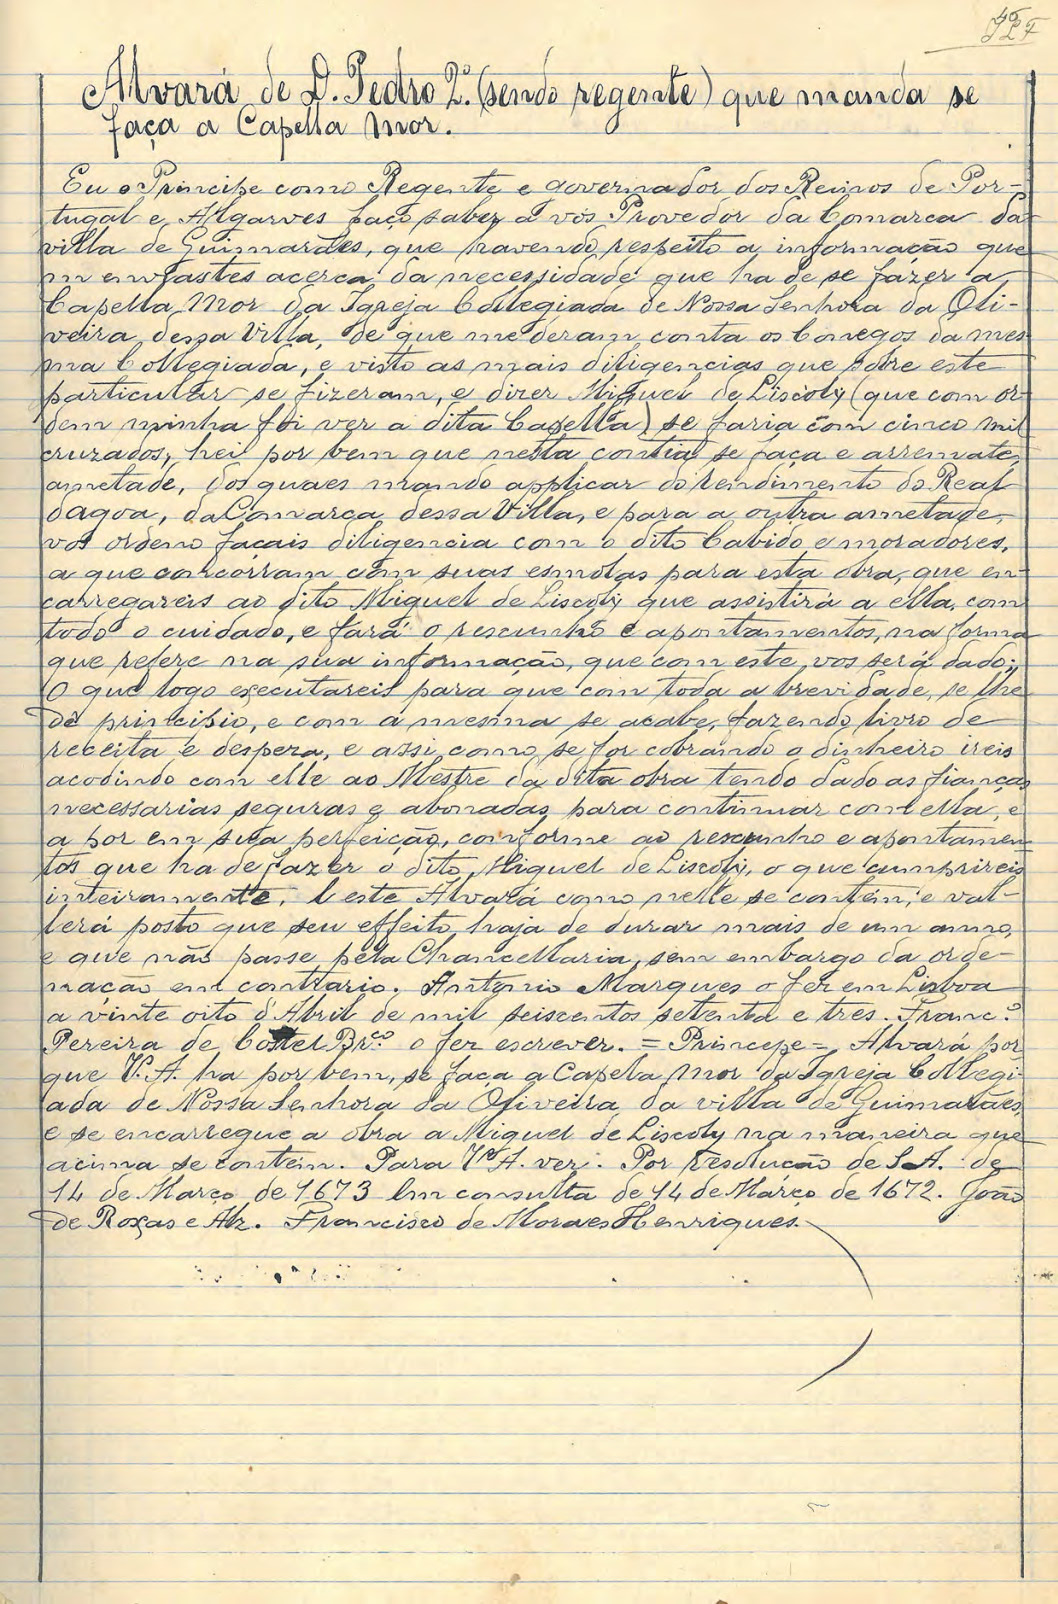 Alvará de D. Pedro 2.º (sendo regente) que manda se
faça a Capella Mor.
Eu o Principe como Regente e governador dos Reinos de Por-
tugal e Algarves faço saber a vós Provedor da Comarca da
villa de Guimarães, que havendo respeito a informação que
m enviastes acerca da necessidade que ha de se fazer a
Capella Mor da Igreja Collegiada de Nossa Senhora da Oli-
veira dessa Villa, de que me deram conta os Conegos da mes
ma Collegiada, e visto as mais diligencias que sobre este
particular se fizeram, e dizer Miguel de Liscoly (que com or-
dem minha foi ver a dita Capella) se faria com cinco mil
cruzados; hei por bem que nesta contia se faça e arremate,
ametade, dos quaes mando applicar do rendimento do Real
dagoa, da Comarca dessa Villa, e para a outra ametade,
vos ordeno façais diligencia com o dito Cabido e moradores,
a que concorram com suas esmolas para esta obra, que en-
carregareis ao dito Miguel de Liscoly que assistirá a ella, com
todo o cuidado, e fará o rescunho e apontamentos, na forma
que refere na sua informação, que com este vos será dado;
O que logo executareis para que com toda a brevidade, se lhe
dê principio, e com a mesma se acabe, fazendo livro de
receita e despeza, e assi como se for cobrando o dinheiro ireis
acodindo com elle ao Mestre da dita obra tendo dado as fianças
necessarias seguras e abonadas, para continuar com ella, e
a por em sua perfeição, conforme ao rescunho e apontamen
tos que ha de fazer o dito Miguel de Liscoly, o que cumprireis
inteiramente. E este Alvará como nelle se contém, e val-
lerá posto que seu effeito haja de durar mais de um anno,
e que não passe pela Chancellaria, sem embargo da orde-
nação em contrario. Antonio Marques o fez em Lisboa
a vinte oito d Abril de mil seiscentos setenta e tres. Franc.º
Pereira de Castel Br.co o fez escrever. = Princepe =, Alvará por
que V. A. ha por bem, se faça a Capela Mor da Igreja Collegi-
ada de Nossa Senhora da Oliveira da villa de Guimarães,
e se encarregue a obra a Miguel de Liscoly na maneira que
acima se contém. Para V. A. ver. Por resolução de S. A. de
14 de Março de 1673 Em consulta de 14 de Março de 1672. João
de Roxas e Az. Francisco de Moraes Henriques.